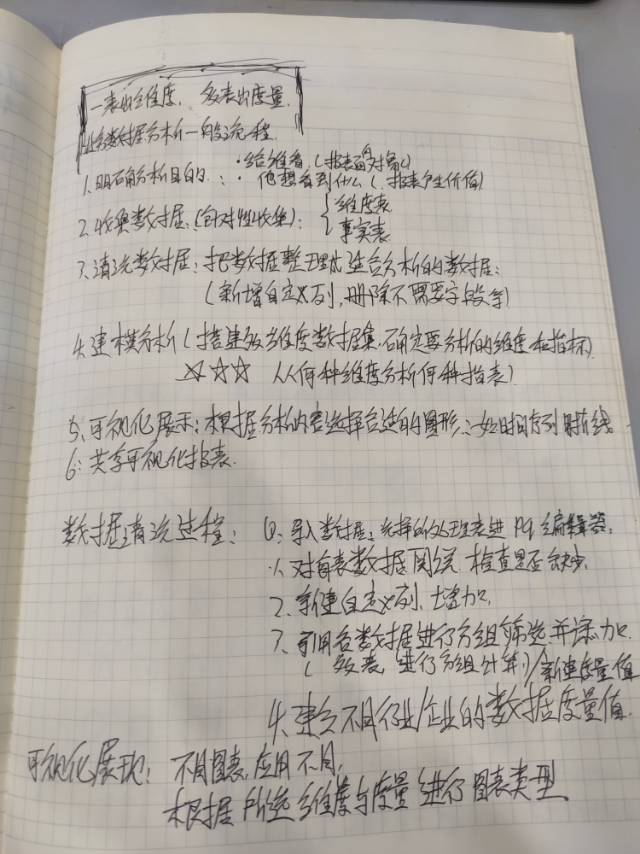 一表出维度,多表出度量.
业务数据分析一般流程
1.明确分析目的: ·给谁看(报表面对对象)
·他想看到什么(报表产生价值)
2.收集数据:(针对性收集): {维度表
事实表
3.清洗数据:把数据整理成适合分析的数据:
(新增自定义列,删除不需要字段等)
4.建模分析(搭建多维度数据集,确定要分析的维度和指标)
☆☆☆ 从何种维度分析何种指表)
5.可视化展示:根据分析内容选择合适的图形:如时间序列用折线
6:共享可视化报表.
数据清洗过程: 0:导入数据:选择的处理表进PQ编辑器:
1.对自表数据 检查是否缺少.
2.新建自定义列,增加.
3.引用各数据进行分组筛选并添加.
(多表,进行分组计算)/新建度量值
4.建立不同行业/企业的数据度量值.
可视化展现: 不同图表,应用不同,
根据所选维度与度量进行图表类型.